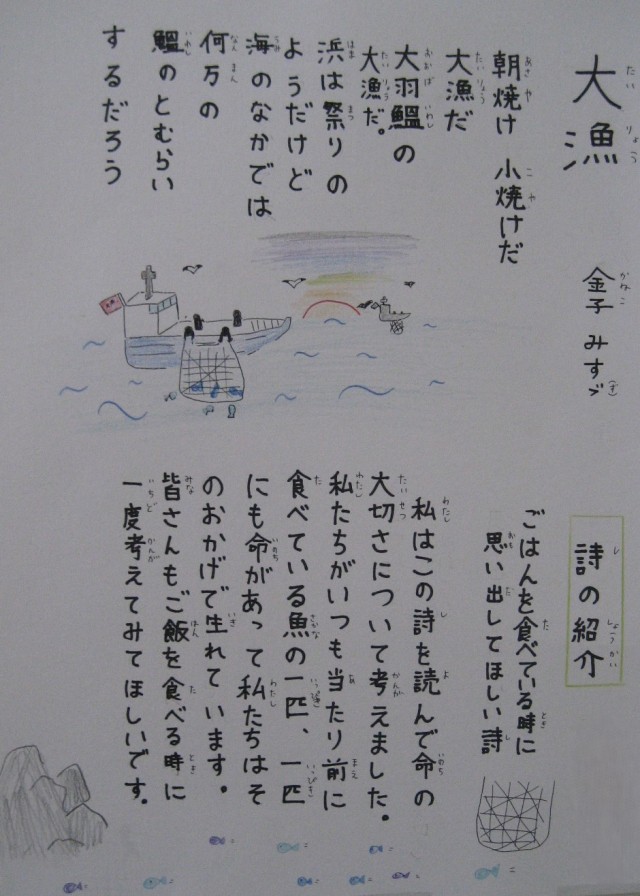 大漁
金子みすゞ
朝焼け小焼けだ
大漁だ
大羽鰮の
大漁だ。
浜は祭りの
ようだけど
海のなかでは
何万の
鰮のとむらい
するだろう
詩の紹介
ごはんを食べている時に
思い出してほしい詩
私はこの詩を読んで命の
大切さについて考えました。
私たちがいつも当たり前に
食べている魚の一匹、一匹
にも命があって私たちはそ
のおかげで生れています。
皆さんもご飯を食べる時に
一度考えてみてほしいです。